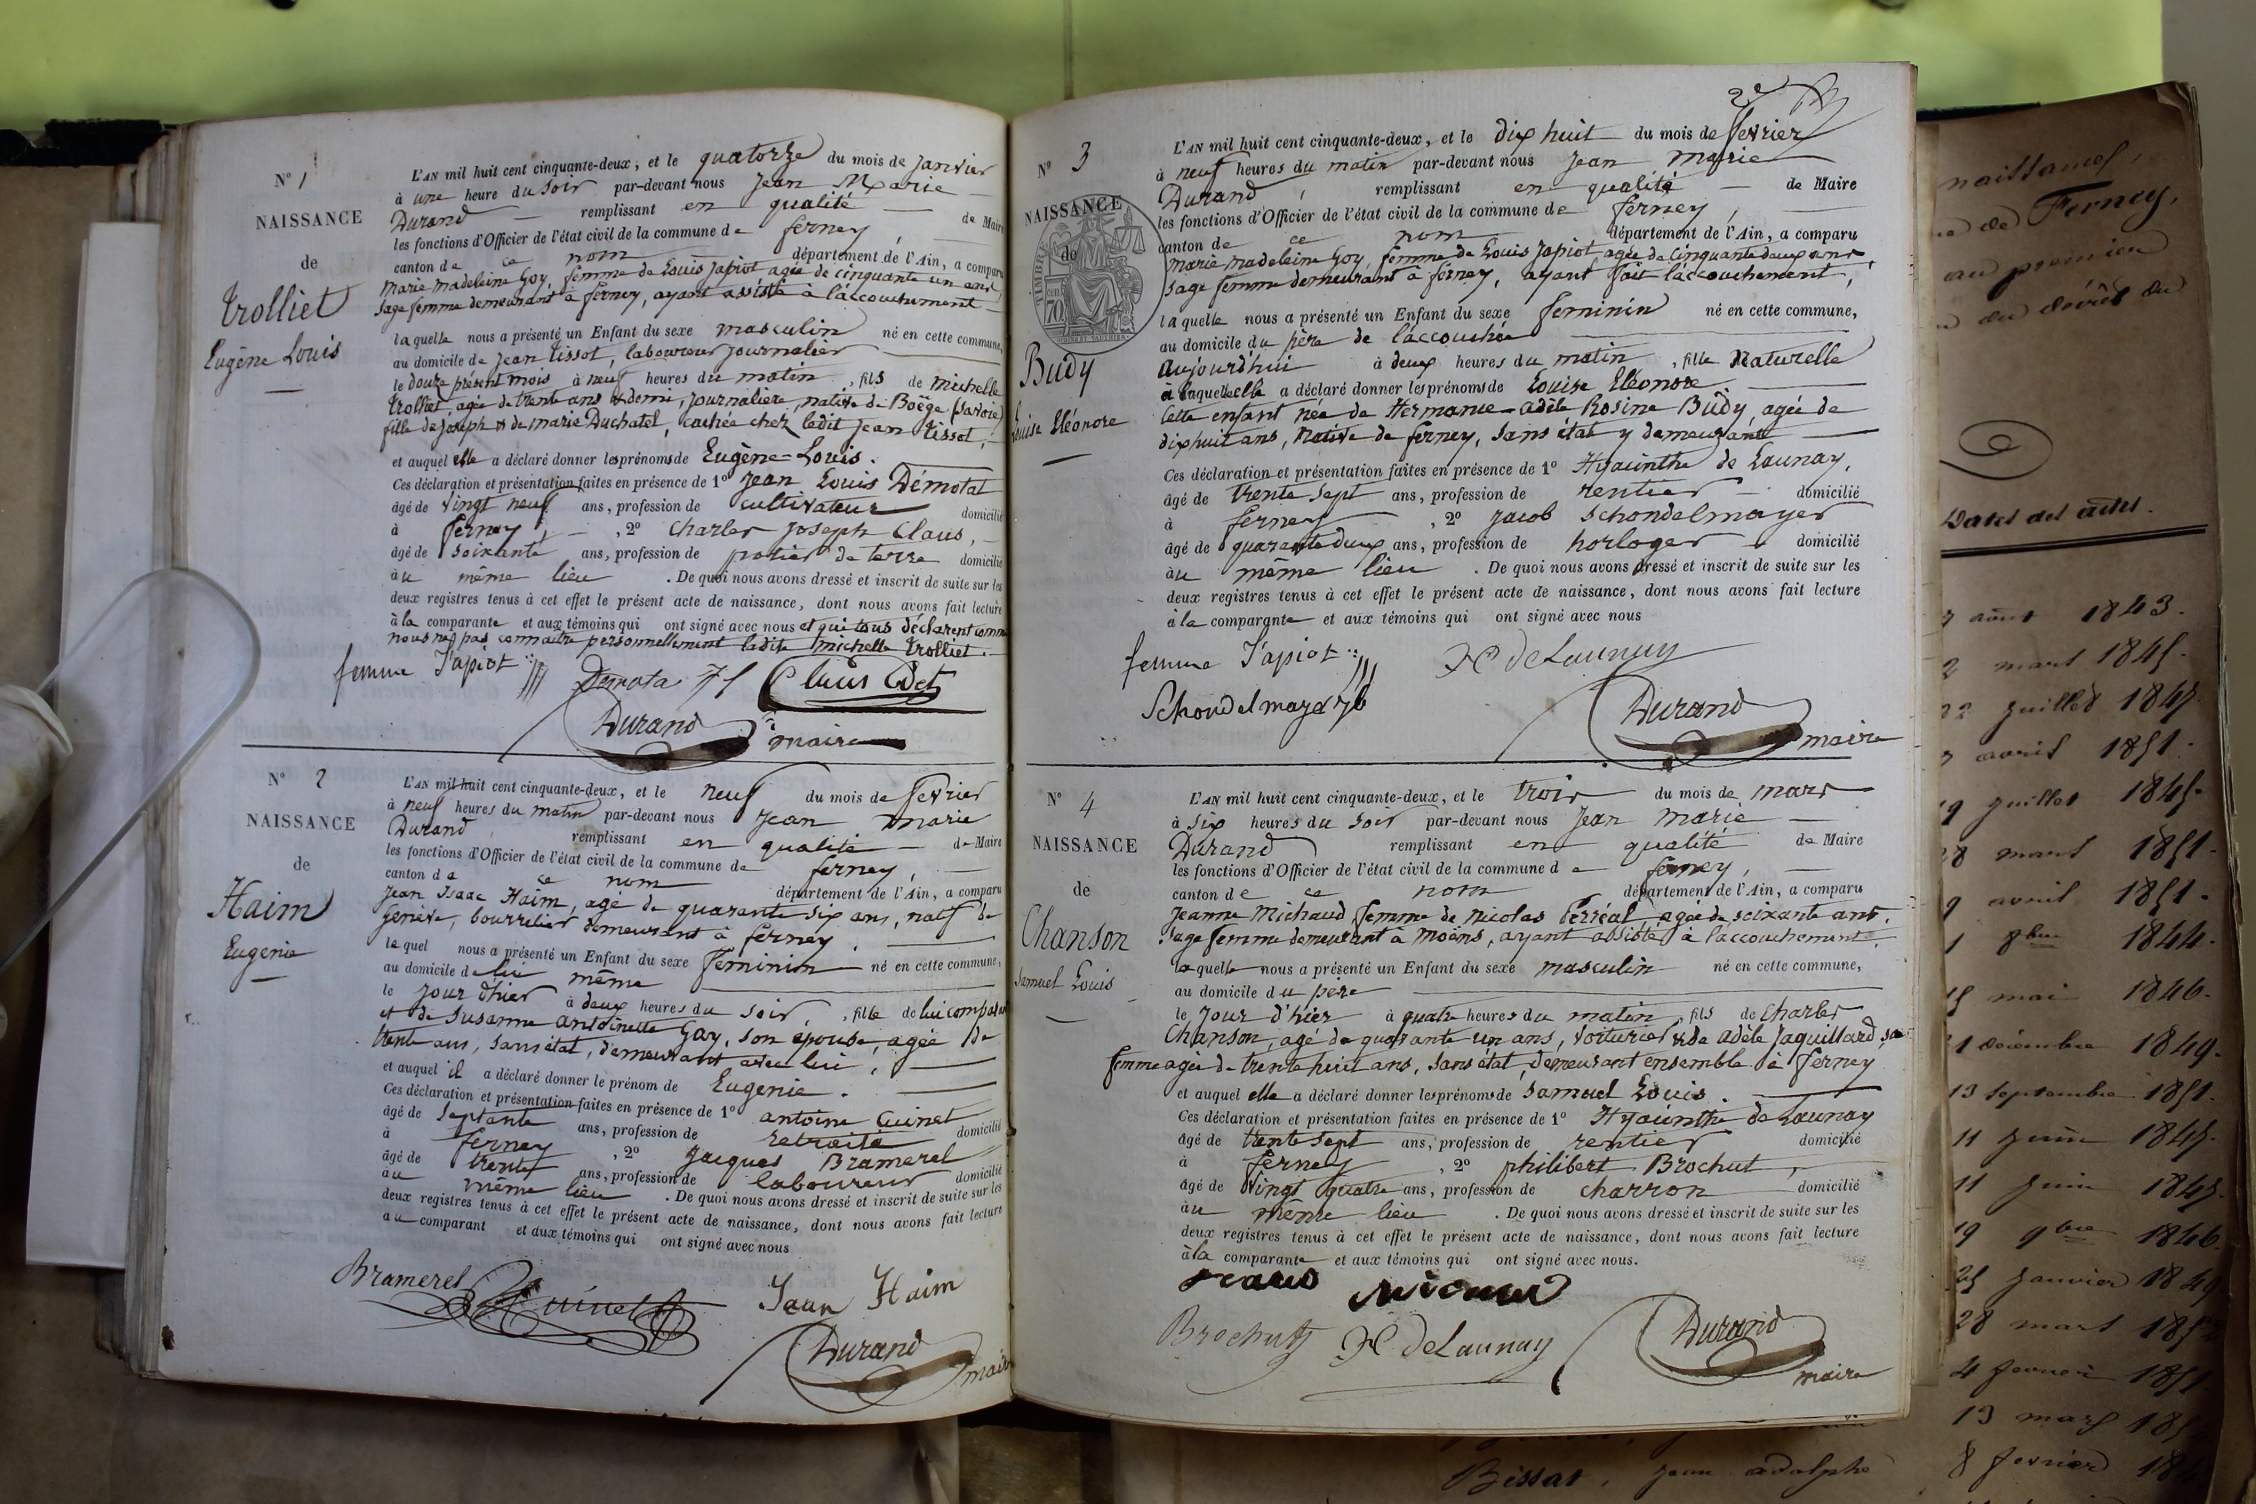 N° 1
NAISSANCE
de
Trolliet
Eugène Louis
L'AN mil huit cent cinquante-deux, et le quatorze du mois de janvier
à une heure du soir par-devant nous Jean Marie
Durand remplissant en qualité de Maire
les fonctions d'Officier de l'état civil de la commune de ferney,
canton de ce nom département de l'Ain, a comparu
marie madeleine Goy, femme de Louis Japiot agée de cinquante un ans,
sage femme demeurant à ferney, ayant assisté à l'accouchement
laquelle nous a présenté un Enfant du sexe masculin né en cette commune,
au domicile de jean tissot, laboureur journalier
le douze présent mois à neuf heures du matin, fils de michelle
trolliet, agée de trente ans & demi, journalière, native de Boëge (savoie)
fille de joseph & de marie Duchatel, cachée chez ledit jean tissot,
et auquel elle a déclaré donner les prénoms de Eugène-Louis.
Ces déclaration et présentation faites en présence de 1° jean Louis Démotat
âgé de vingt neuf ans, profession de cultivateur domicilié
à ferney, 2° Charles joseph Claus,
âgé de soixante ans, profession de potier de terre domicilié
au même lieu. De quoi nous avons dressé et inscrit de suite sur les
deux registres tenus à cet effet le présent acte de naissance, dont nous avons fait lecture
à la comparante et aux témoins qui ont signé avec nous et qui tous déclarent comme
nous ne pas connaitre personnellement ladite michelle trolliet.
femme Japiot
Demota Claus
Durand
maire
N° 2
NAISSANCE
de
Haim
Eugenie
L'AN mil huit cent cinquante-deux, et le neuf du mois de fevrier
à neuf heures du matin par-devant nous Jean marie
Durand, remplissant en qualité de Maire
les fonctions d'Officier de l'état civil de la commune de ferney,
canton de ce nom département de l'Ain, a comparu
jean Isaac Haim, agé de quarante six ans, natif de
genève, bourrelier demeurant à ferney.
lequel nous a présenté un Enfant du sexe feminin né en cette commune,
au domicile de lui même
le jour d'hier à deux heures du soir, fille de lui comparant
et de Susanne antoinette Gay, son épouse, agée de
trente ans, sans état, demeurant avec lui,
et auquel il a déclaré donner le prénom de Eugenie.
Ces déclaration et présentation faites en présence de 1° antoine Guinet
âgé de septante ans, profession de retraité domicilié
à ferney, 2° jacques Bramerel
âgé de trente ans, profession de laboureur domicilié
au même lieu. De quoi nous avons dressé et inscrit de suite sur les
deux registres tenus à cet effet le présent acte de naissance, dont nous avons fait lecture
au comparant et aux témoins qui ont signé avec nous
Bramerel Guinet Jean Haim
Durand
maire
2e
N° 3
NAISSANCE
de
TIMBRE
70
Budy
Louise Eléonore
L'AN mil huit cent cinquante-deux, et le dix huit du mois de fevrier
à neuf heures du matin par-devant nous jean marie
Durand, remplissant en qualité de Maire
les fonctions d'Officier de l'état civil de la commune de ferney,
canton de ce nom département de l'Ain, a comparu
marie madeleine Goy, femme de Louis Japiot, agée de cinquante deux ans,
sage femme demeurant à ferney, ayant fait l'accouchement,
laquelle nous a présenté un Enfant du sexe feminin né en cette commune,
au domicile du père de l'accouchée
aujourd'hui à deux heures du matin, fille Naturelle
à laquelle elle a déclaré donner les prénoms de Louise Eléonore
Cette enfant née de Hermanie-adèle Rosine Budy, agée de
dix huit ans, Native de ferney, sans état y demeurante
Ces déclaration et présentation faites en présence de 1° Hyacinthe de Launay,
âgé de trente sept ans, profession de rentier domicilié
à ferney, 2° jacob schondelmayer
âgé de quarante deux ans, profession de horloger domicilié
au même lieu. De quoi nous avons dressé et inscrit de suite sur les
deux registres tenus à cet effet le présent acte de naissance, dont nous avons fait lecture
à la comparante et aux témoins qui ont signé avec nous
femme Japiot H deLaunay
Schondelmayer
Durand
maire
N° 4
NAISSANCE
de
Chanson
Samuel Louis
L'AN mil huit cent cinquante-deux, et le trois du mois de mars
à six heures du soir par-devant nous jean marie
Durand remplissant en qualité de Maire
les fonctions d'Officier de l'état civil de la commune de ferney,
canton de ce nom département de l'Ain, a comparu
jeanne michaud femme de nicolas Perréal, agée de soixante ans,
sage femme demeurant à moëns, ayant assisté à l'accouchement.
laquelle nous a présenté un Enfant du sexe masculin né en cette commune,
au domicile du père
le jour d'hier à quatre heures du matin, fils de Charles
Chanson, agé de quarante un ans, voiturier & de adèle jaquillard, sa
femme agée de trente huit ans, sans état, demeurant ensemble à ferney
et auquel elle a déclaré donner les prénoms de Samuel Louis.
Ces déclaration et présentation faites en présence de 1° Hyacinthe de Launay
âgé de trente sept ans, profession de rentier domicilié
à ferney, 2° philibert Brochut,
âgé de vingt quatre ans, profession de charron domicilié
au même lieu. De quoi nous avons dressé et inscrit de suite sur les
deux registres tenus à cet effet le présent acte de naissance, dont nous avons fait lecture
à la comparante et aux témoins qui ont signé avec nous.
Brochut H deLaunay
Durand
maire
naissances,
de Ferney,
au premier
du décrêt du
Dates des actes.
août 1843.
mars 1845.
22 juillet 1847.
avril 1851.
9 juillet 1845.
28 mars 1851.
9 avril 1851.
8bre 1844.
15 mai 1846.
21 décembre 1849.
13 septembre 1851.
11 juin 1845.
11 juin 1845.
19 9bre 1846.
25 janvier 1849
28 mars 185
4 fevrier 1851
13 mars 185
Bessat, jean adolphe 8 fevrier 18